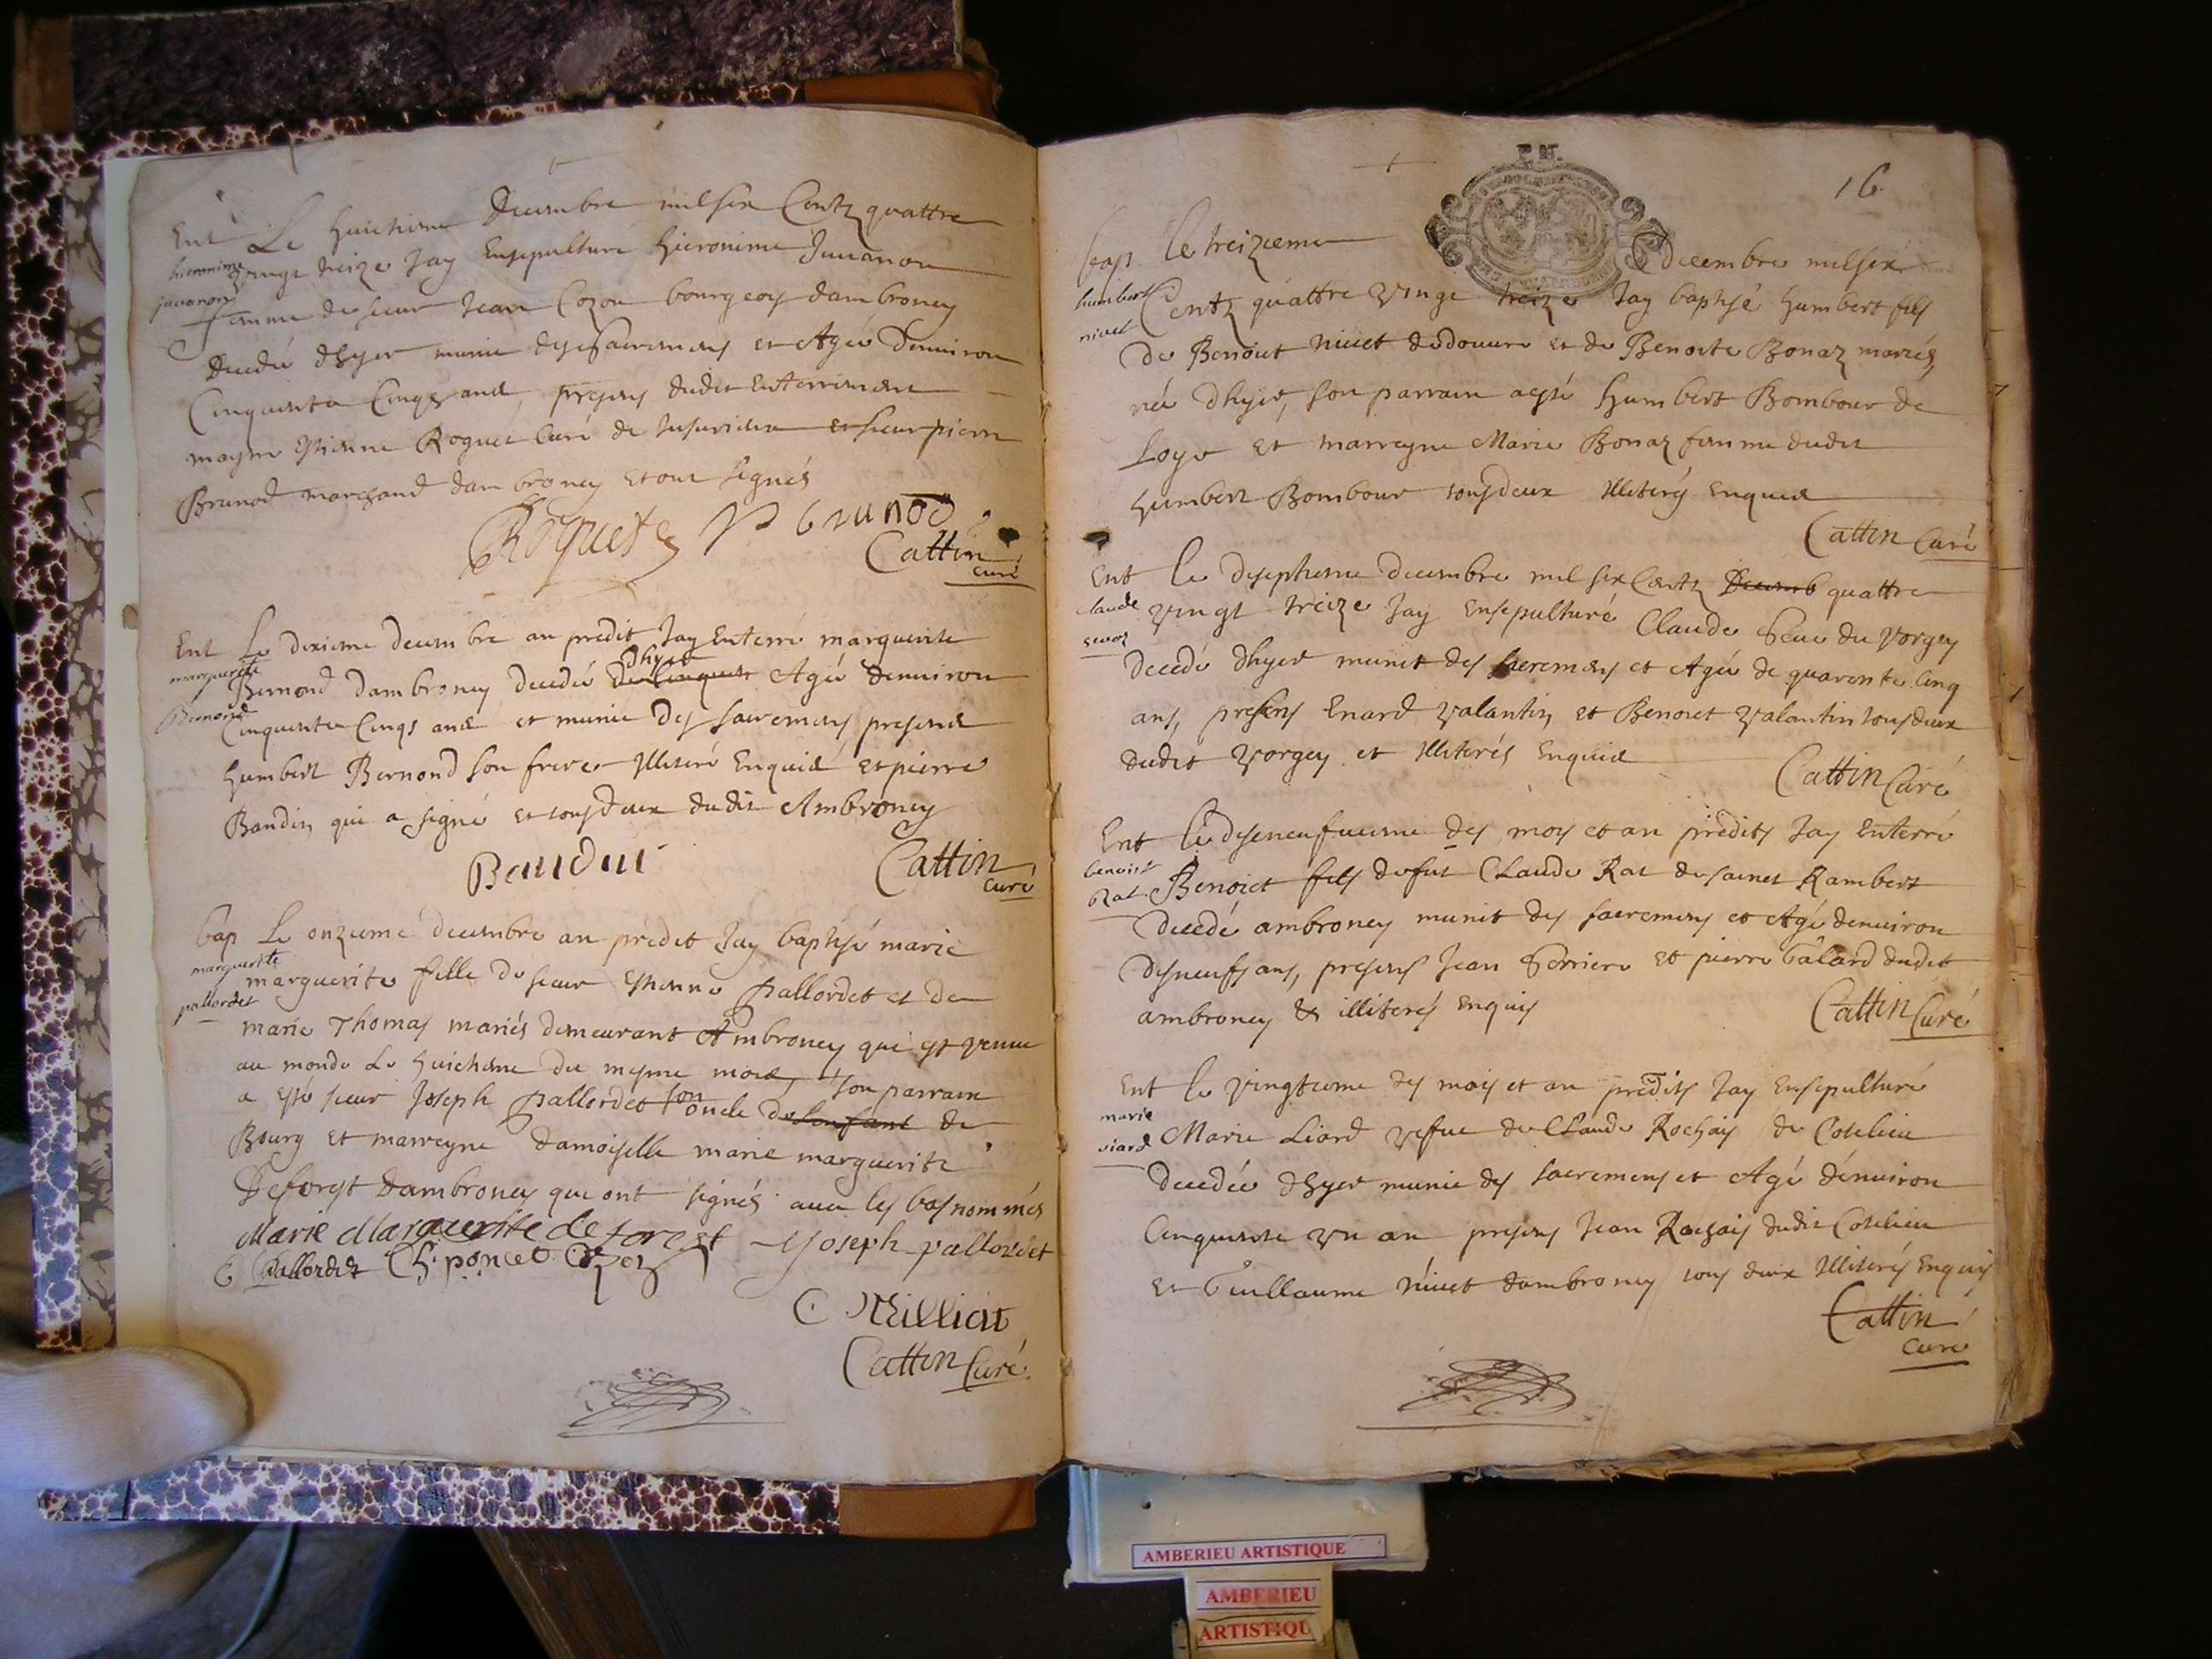 Ent Le huictieme Decembre mil six Centz quattre
hieronime
javanon
vingt treize Jay Ensepulturé hieronime Javanon
femme de sieur Jean Cozon bourgeois dambroney
Decedée dhyer munie des sacremens et Agée Denuiron
Cinquante Cinqs ans, presens dudit Enterrement
Estienne Roguet Curé de et sieur pierre
Brunod marchand dambroney et ont signés
Roguet P brunod
Cattin
curé
Ent Le dixieme decembre an predit Jay Enterré marguerite
marguerite
Bernond
Bernond dambroney decedée dhyer Agée denuiron
Cinquante Cinqs ans et munie des sacremens presens
humbert Bernond son frere Illiteré Enquis et pierre
Baudin qui a signé et tous deux dudit Ambroney
Baudin
Cattin
curé
bap Le onzieme decembre an predit Jay baptisé marie
marguerite
pallordet
marguerite fille de sieur Estienne pallordet et de
marie Thomas mariés demeurant Ambroney qui est venue
au monde Le huictieme du mesme mois, son parrain
a esté sieur Joseph pallordet son oncle de lenfant de
Bourg et marreyne damoiselle marie marguerite
Deforest dambroney qui ont signés auec les bas nommés
Marie Marguerite de forest Joseph pallordet
Pallordet Ch. poncet
C Milliat
Cattin Curé
P. M.
16
bap Le treizieme Decembre mil six
humbert
nivet
Centz quattre vingt treize Jay baptisé humbert fils
de Benoict niuet dedouure et de Benoite Bonaz mariés,
né dhyer, son parrain a esté humbert Bombour de
Loye et marreyne Marie Bonaz femme dudit
humbert Bombour tous deux Illiterés Enquis
Cattin Curé
Ent Le diseptieme decembre mil six Centz Decemb quattre
claude
vingt treize Jay Ensepulturé Claude seue du vorgey
Decedé dhyer munit des sacremens et Agé de quarente cinq
ans, presens Enard valantin et Benoict valantin tous deux
dudit vorgey et Illiterés Enquis
Cattin Curé
Ent Le diseneufuieme des mois et an predits Jay Enterré
benoist
Rat
Benoict fils defut Claude Rat de sainct Rambert
Decedé ambroney munit des sacremens et Agé denuiron
disneufs ans, presens Jean ferriere et pierre Galard dudit
ambroney illiterés Enquis
Cattin Curé
Ent le vingtieme des mois et an predits Jay Ensepulturé
marie
Marie Liard vesfue de Claude Rochais de Cotelieu
Decedée dhyer munie des sacremens et Agée dénuiron
Cinquante vn an presens Jean Rochais dudit Cotelieu
et Guillaume niuet dambroney tous deux Illiterés Enquis
Cattin
Curé
AMBERIEU ARTISTIQUE
AMBERIEU
ARTISTIQU